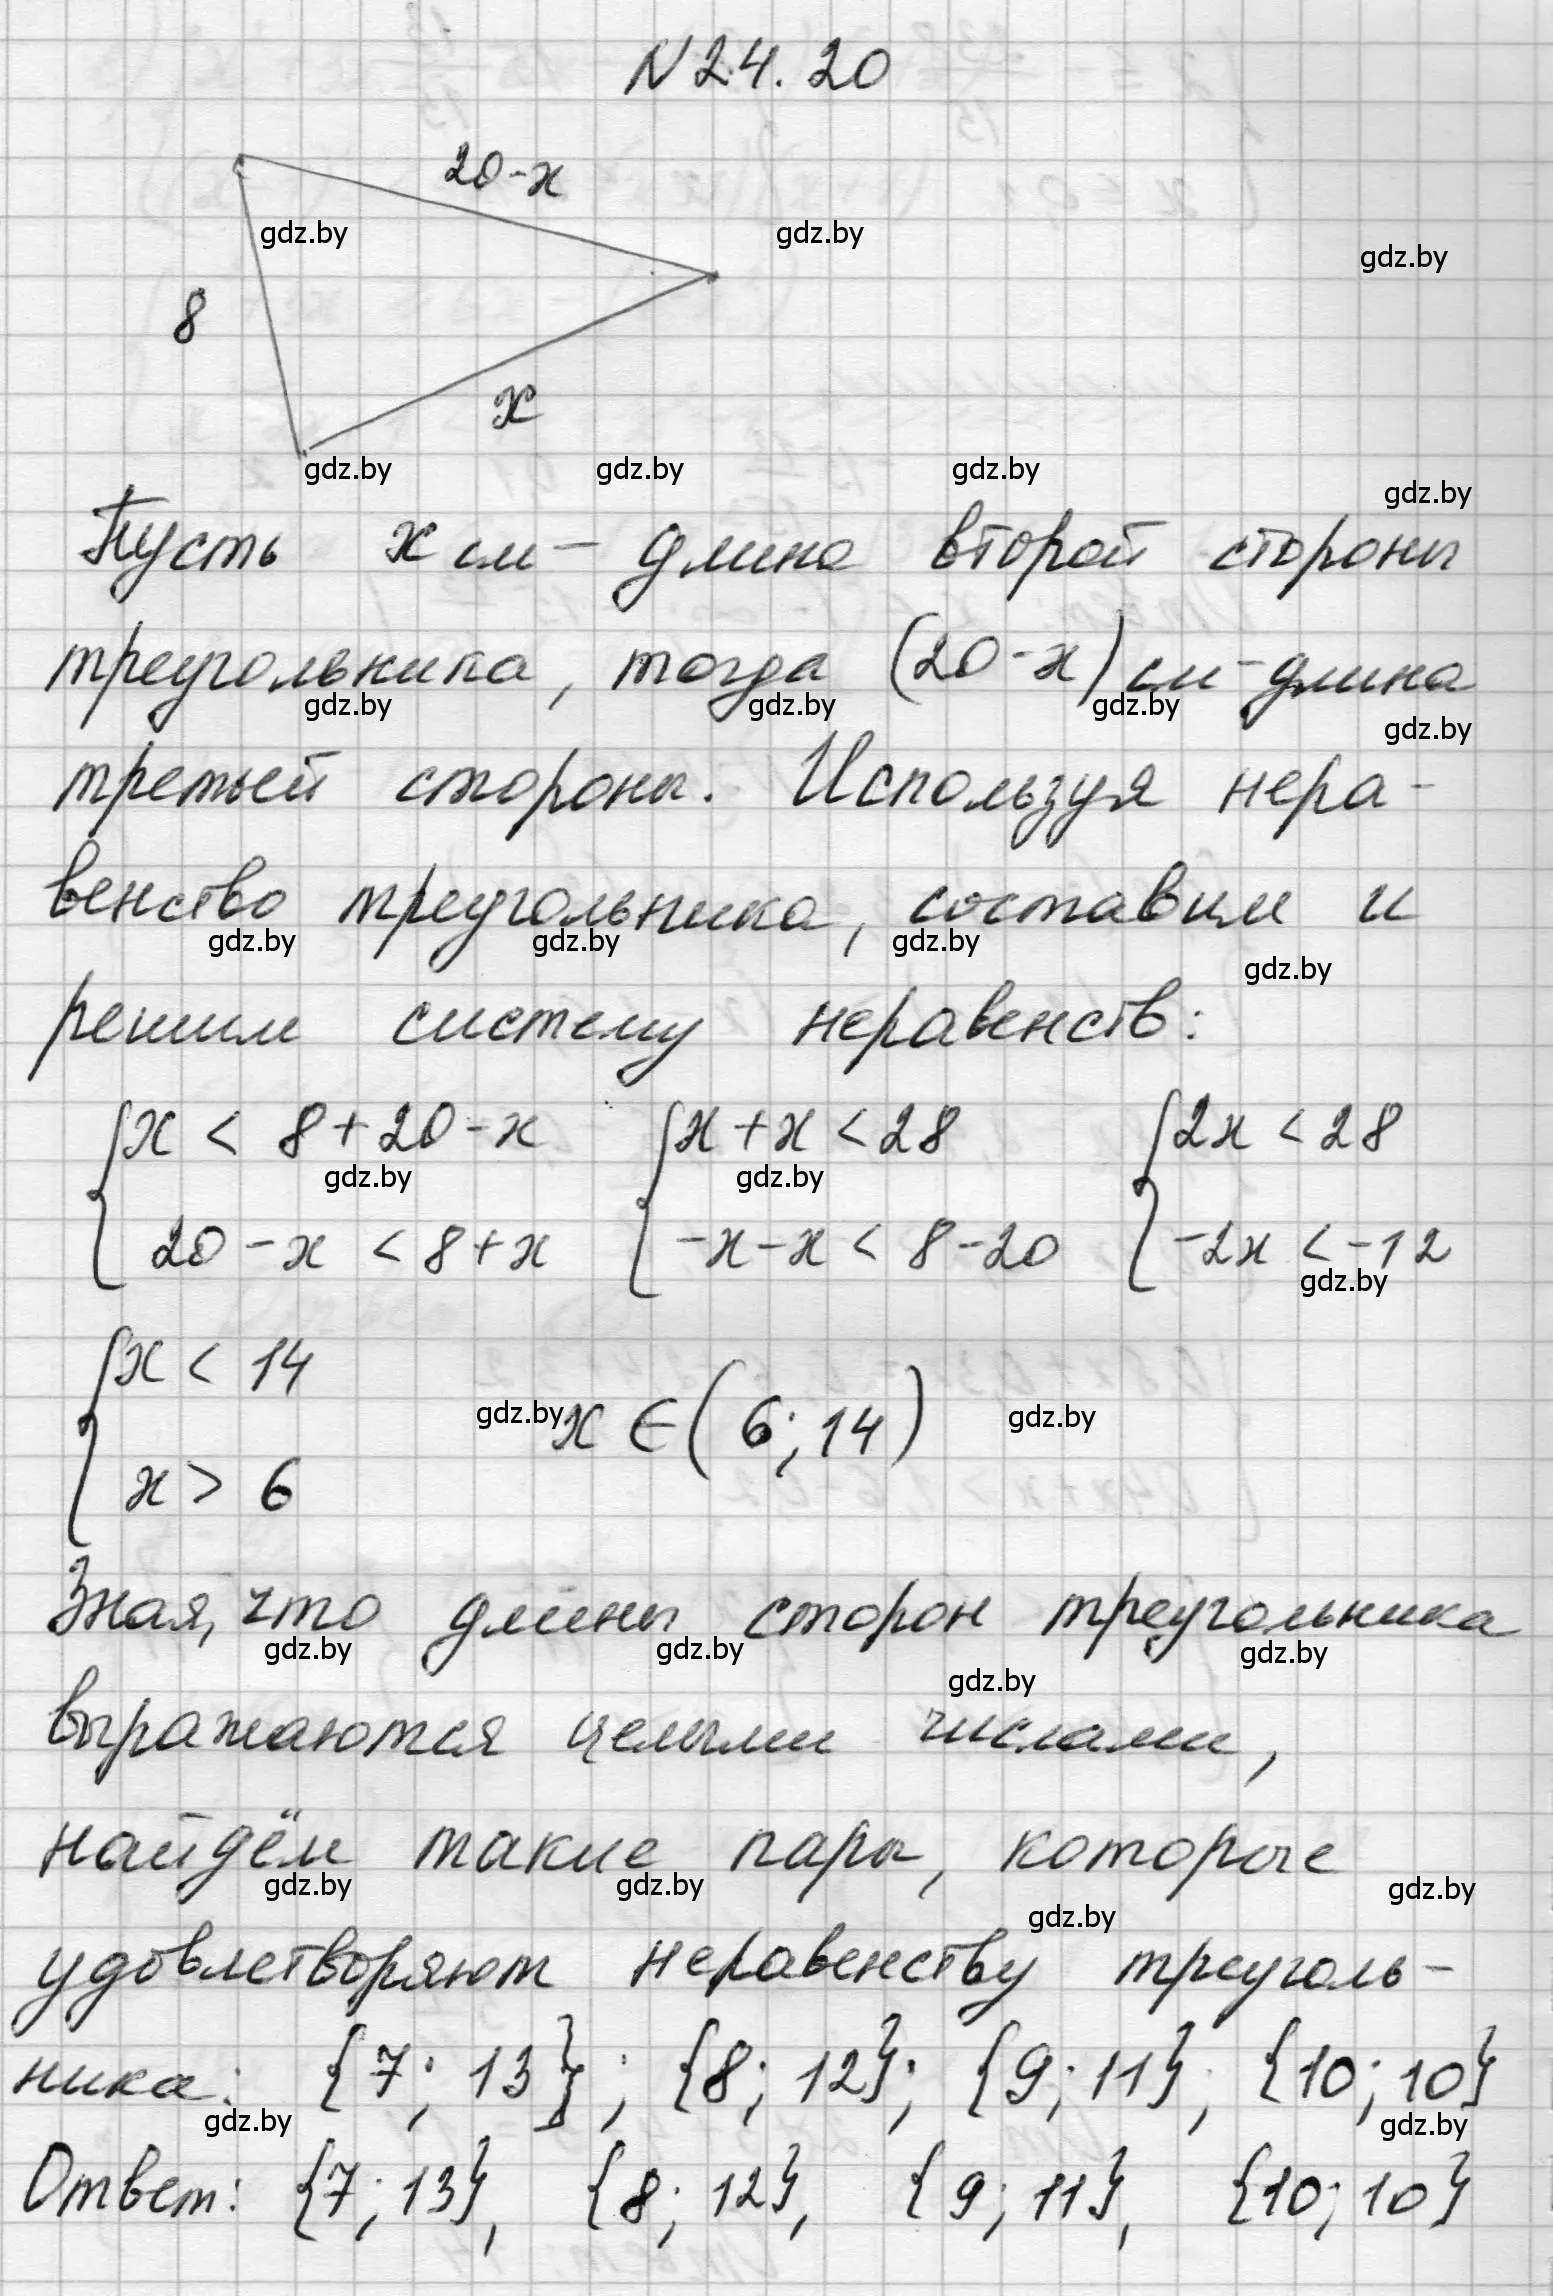 N 24.20
20-x
gdz.by gdz.by gdz.by
8
x
gdz.by gdz.by gdz.by gdz.by
Пусть x см - длина второй стороны
треугольника, тогда (20-x) см - длина
gdz.by gdz.by gdz.by gdz.by
третьей стороны. Используя нера-
венство треугольника, составим и
gdz.by gdz.by gdz.by gdz.by
решим систему неравенств:
{x < 8+20-x {x+x < 28 {2x < 28
gdz.by gdz.by
20-x < 8+x -x-x < 8-20 -2x < -12
gdz.by
{x < 14
gdz.by x ∈ (6; 14) gdz.by
x > 6
Зная, что длины сторон треугольника
gdz.by gdz.by gdz.by
gdz.by
выражаются целыми числами,
найдём такие пары, которые
gdz.by gdz.by gdz.by gdz.by
удовлетворяют неравенству треуголь-
ника: {7; 13}; {8; 12}; {9; 11}; {10; 10}
gdz.by gdz.by
Ответ: {7; 13}, {8; 12}, {9; 11}, {10; 10}